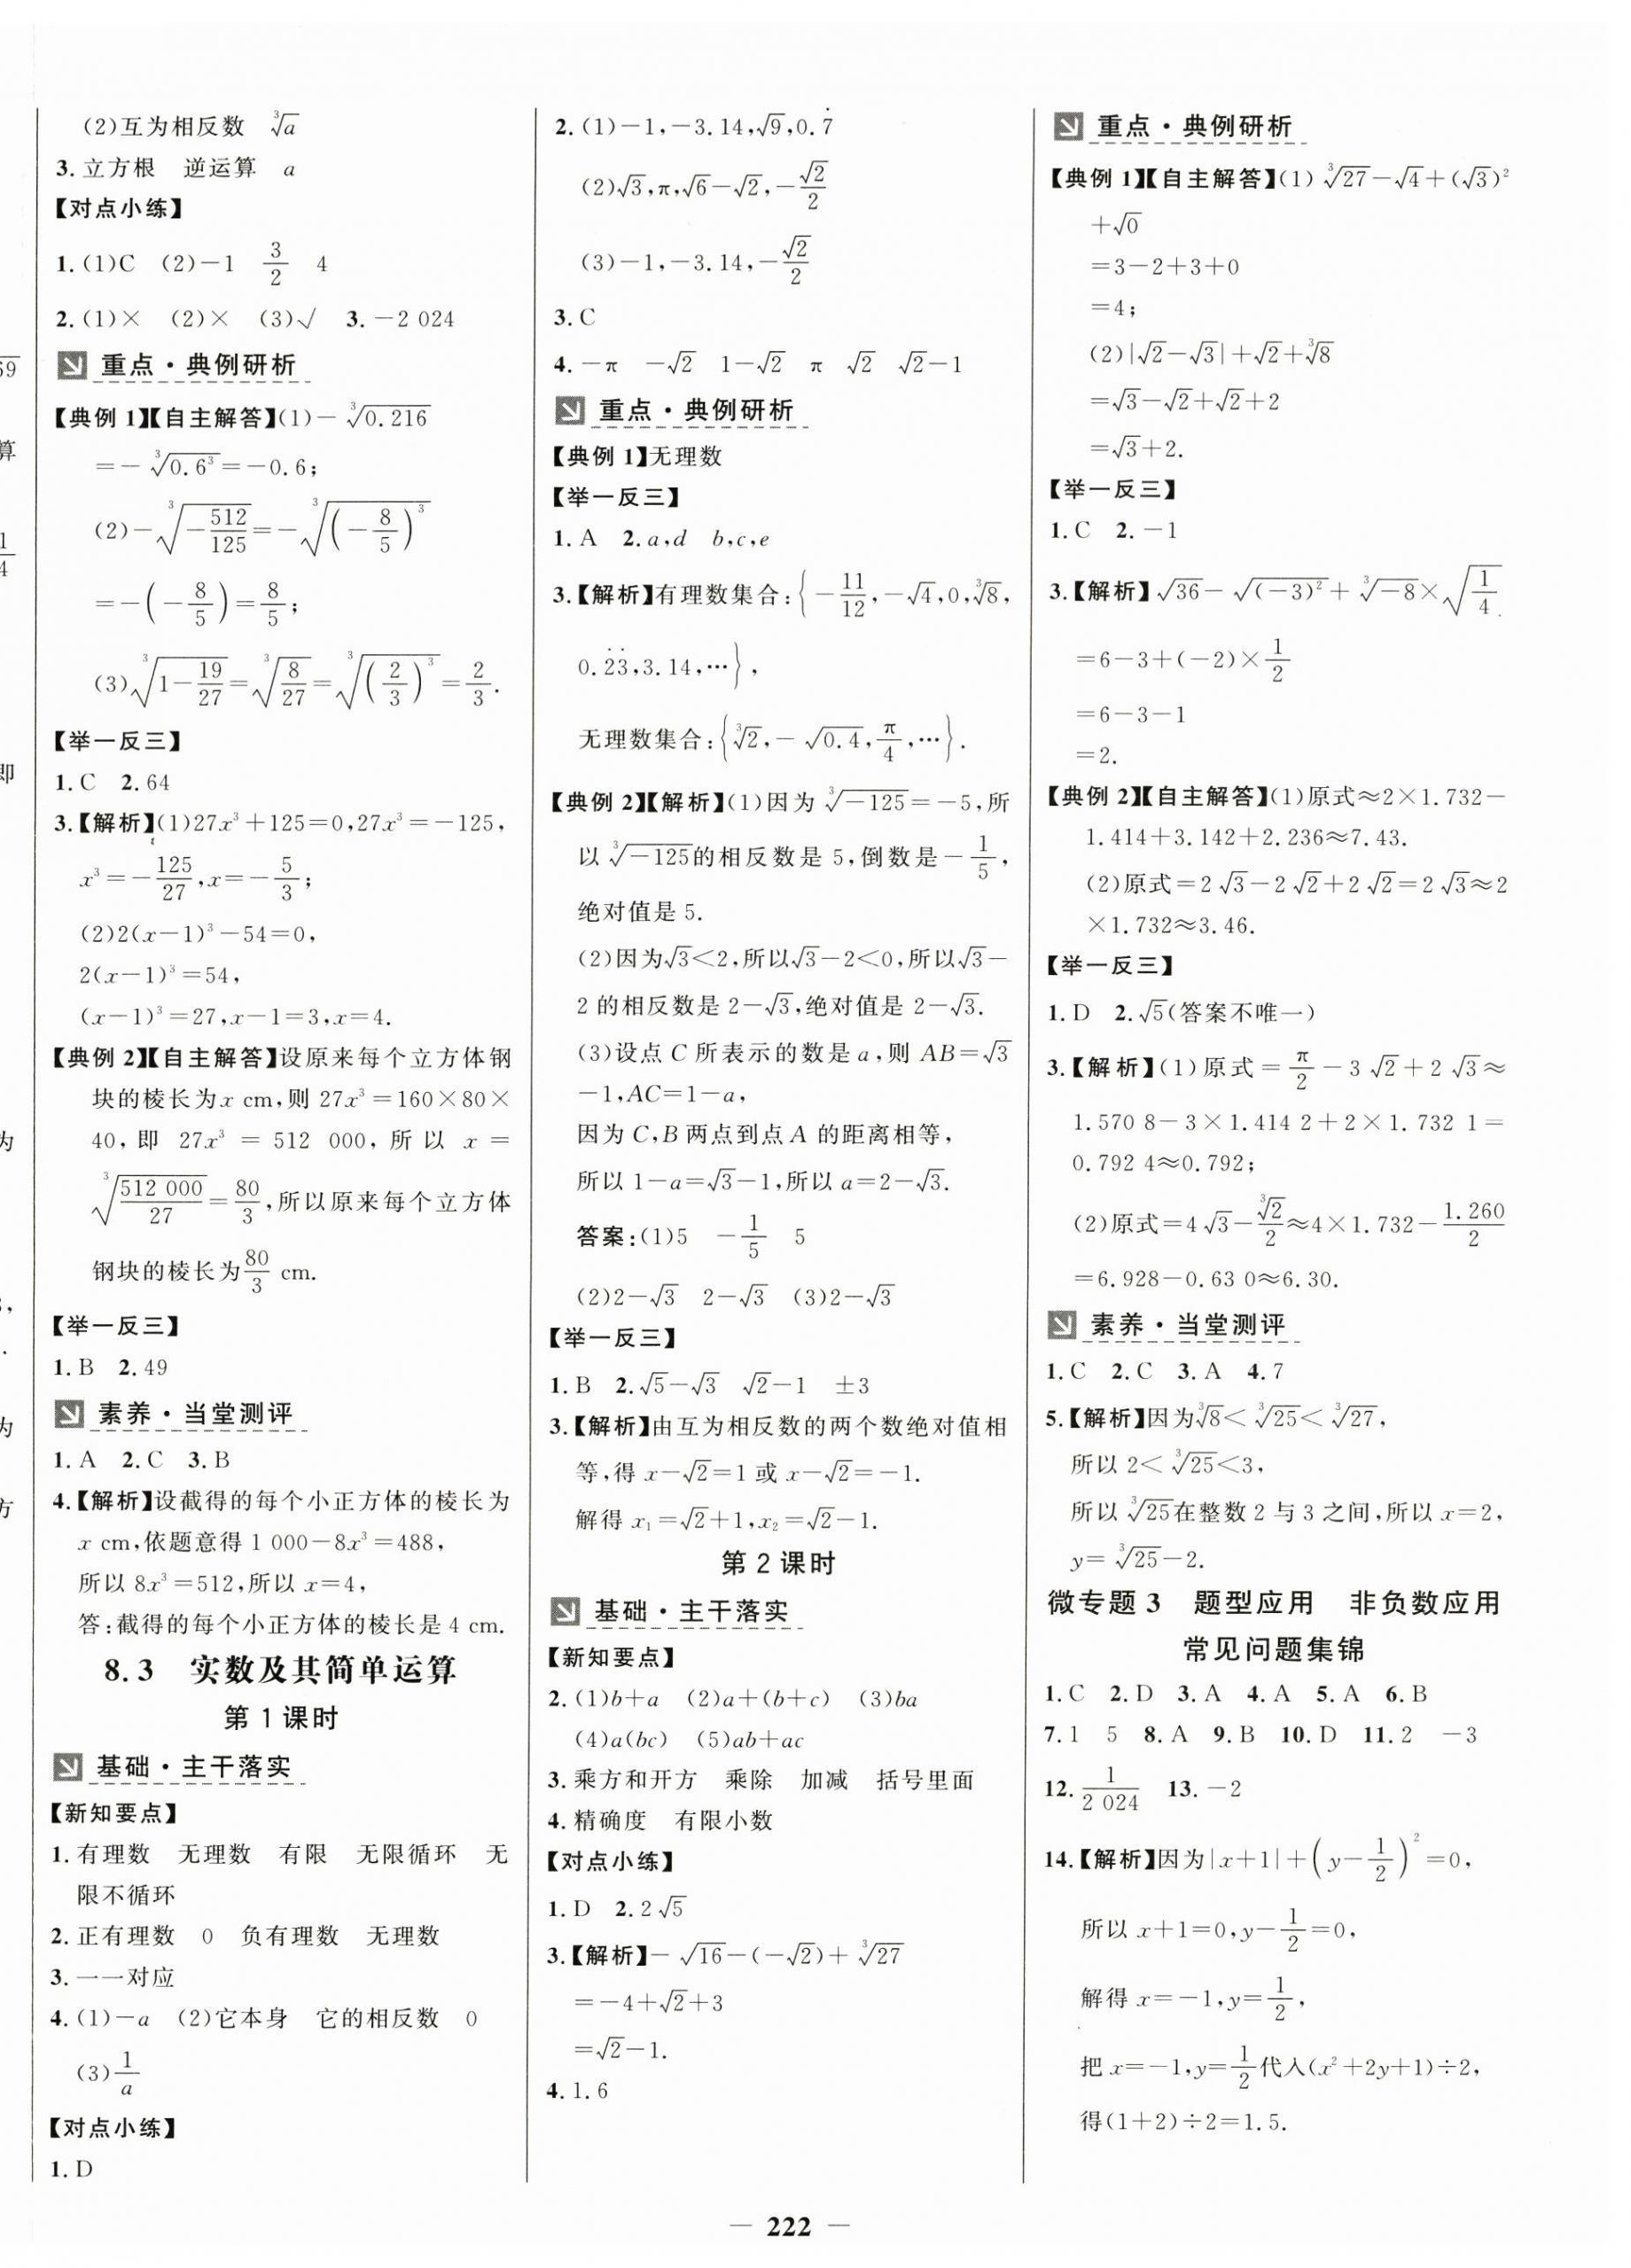 (2)互为相反数　∛a
3.立方根　逆运算　a
【对点小练】
1.(1)C　(2)－1　3/2　4
2.(1)×　(2)×　(3)√　3.－2 024
重点·典例研析
【典例1】【自主解答】(1)－∛0.216
＝－∛(0.6³)＝－0.6;
(2)－∛(－512/125)＝－∛((－8/5)³)
＝－(－8/5)＝8/5;
(3)∛(1－19/27)＝∛(8/27)＝∛((2/3)³)＝2/3.
【举一反三】
1.C　2.64
3.【解析】(1)27x³＋125＝0,27x³＝－125,
x³＝－125/27,x＝－5/3;
(2)2(x－1)³－54＝0,
2(x－1)³＝54,
(x－1)³＝27,x－1＝3,x＝4.
【典例2】【自主解答】设原来每个立方体钢
块的棱长为x cm,则 27x³＝160×80×
40,即 27x³ ＝ 512 000,所以 x ＝
∛(512 000/27)＝80/3,所以原来每个立方体
钢块的棱长为80/3 cm.
【举一反三】
1.B　2.49
素养·当堂测评
1.A　2.C　3.B
4.【解析】设截得的每个小正方体的棱长为
x cm,依题意得 1 000－8x³＝488,
所以 8x³＝512,所以 x＝4,
答:截得的每个小正方体的棱长是 4 cm.
8.3　实数及其简单运算
第1课时
基础·主干落实
【新知要点】
1.有理数　无理数　有限　无限循环　无
限不循环
2.正有理数　0　负有理数　无理数
3.一一对应
4.(1)－a　(2)它本身　它的相反数　0
(3)1/a
【对点小练】
1.D
2.(1)－1,－3.14,√9,0.7̇
(2)√3,π,√6－√2,－√2/2
(3)－1,－3.14,－√2/2
3.C
4.－π　－√2　1－√2　π　√2　√2－1
重点·典例研析
【典例1】无理数
【举一反三】
1.A　2.a,d　b,c,e
3.【解析】有理数集合:{－11/12,－√4,0,∛8,
0.2̇3̇,3.14,…},
无理数集合:{∛2,－√0.4,π/4,…}.
【典例2】【解析】(1)因为∛－125＝－5,所
以∛－125的相反数是 5,倒数是－1/5,
绝对值是 5.
(2)因为√3＜2,所以√3－2＜0,所以√3－
2 的相反数是 2－√3,绝对值是 2－√3.
(3)设点 C 所表示的数是 a,则 AB＝√3
－1,AC＝1－a,
因为 C,B 两点到点 A 的距离相等,
所以 1－a＝√3－1,所以 a＝2－√3.
答案:(1)5　－1/5　5
(2)2－√3　2－√3　(3)2－√3
【举一反三】
1.B　2.√5－√3　√2－1　±3
3.【解析】由互为相反数的两个数绝对值相
等,得 x－√2＝1 或 x－√2＝－1.
解得 x₁＝√2＋1,x₂＝√2－1.
第2课时
基础·主干落实
【新知要点】
2.(1)b＋a　(2)a＋(b＋c)　(3)ba
(4)a(bc)　(5)ab＋ac
3.乘方和开方　乘除　加减　括号里面
4.精确度　有限小数
【对点小练】
1.D　2.2√5
3.【解析】－√16－(－√2)＋∛27
＝－4＋√2＋3
＝√2－1.
4.1.6
重点·典例研析
【典例1】【自主解答】(1)∛27－√4＋(√3)²
＋√0
＝3－2＋3＋0
＝4;
(2)|√2－√3|＋√2＋∛8
＝√3－√2＋√2＋2
＝√3＋2.
【举一反三】
1.C　2.－1
3.【解析】√36－√(－3)²＋∛－8×√(1/4)
＝6－3＋(－2)×1/2
＝6－3－1
＝2.
【典例2】【自主解答】(1)原式≈2×1.732－
1.414＋3.142＋2.236≈7.43.
(2)原式＝2√3－2√2＋2√2＝2√3≈2
×1.732≈3.46.
【举一反三】
1.D　2.√5(答案不唯一)
3.【解析】(1)原式＝π/2－3√2＋2√3≈
1.570 8－3×1.414 2＋2×1.732 1＝
0.792 4≈0.792;
(2)原式＝4√3－∛2/2≈4×1.732－1.260/2
＝6.928－0.63 0≈6.30.
素养·当堂测评
1.C　2.C　3.A　4.7
5.【解析】因为∛8＜∛25＜∛27,
所以 2＜∛25＜3,
所以∛25在整数 2 与 3 之间,所以 x＝2,
y＝∛25－2.
微专题3　题型应用　非负数应用
常见问题集锦
1.C　2.D　3.A　4.A　5.A　6.B
7.1　5　8.A　9.B　10.D　11.2　－3
12.1/2 024　13.－2
14.【解析】因为|x＋1|＋(y－1/2)²＝0,
所以 x＋1＝0,y－1/2＝0,
解得 x＝－1,y＝1/2,
把 x＝－1,y＝1/2代入(x²＋2y＋1)÷2,
得(1＋2)÷2＝1.5.
— 222 —